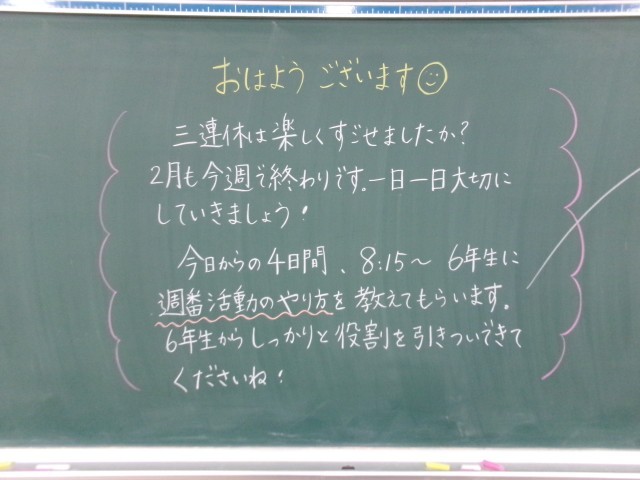 おはようございます☺
三連休は楽しくすごせましたか?
2月も今週で終わりです。一日一日大切に
していきましょう!
今日からの4日間、8:15〜 6年生に
週番活動のやり方を教えてもらいます。
6年生からしっかりと役割を引きついできて
くださいね!